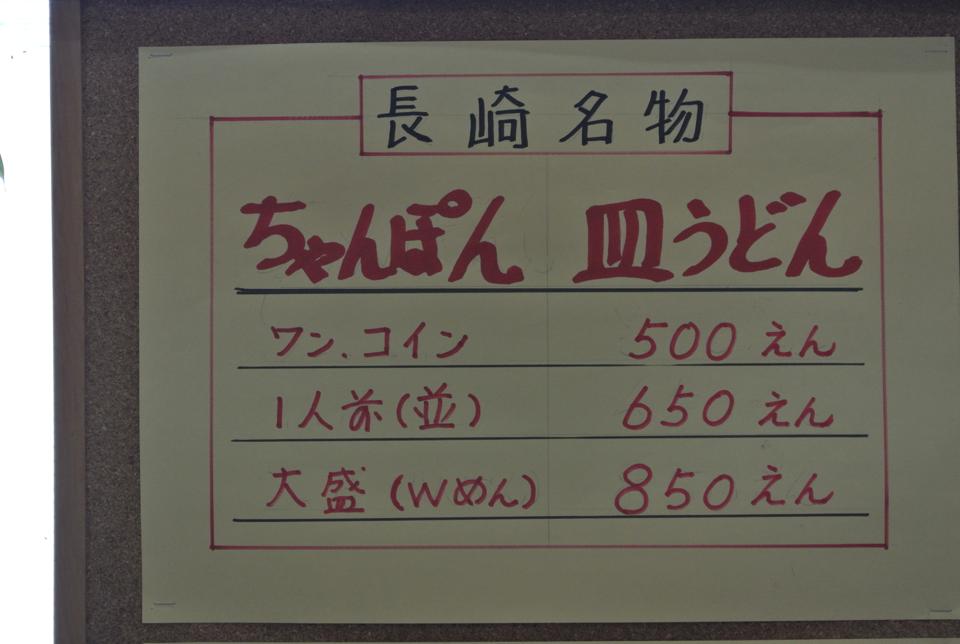 長崎名物
ちゃんぽん 皿うどん
ワン、コイン 500えん
1人前(並) 650えん
大盛(Wめん) 850えん